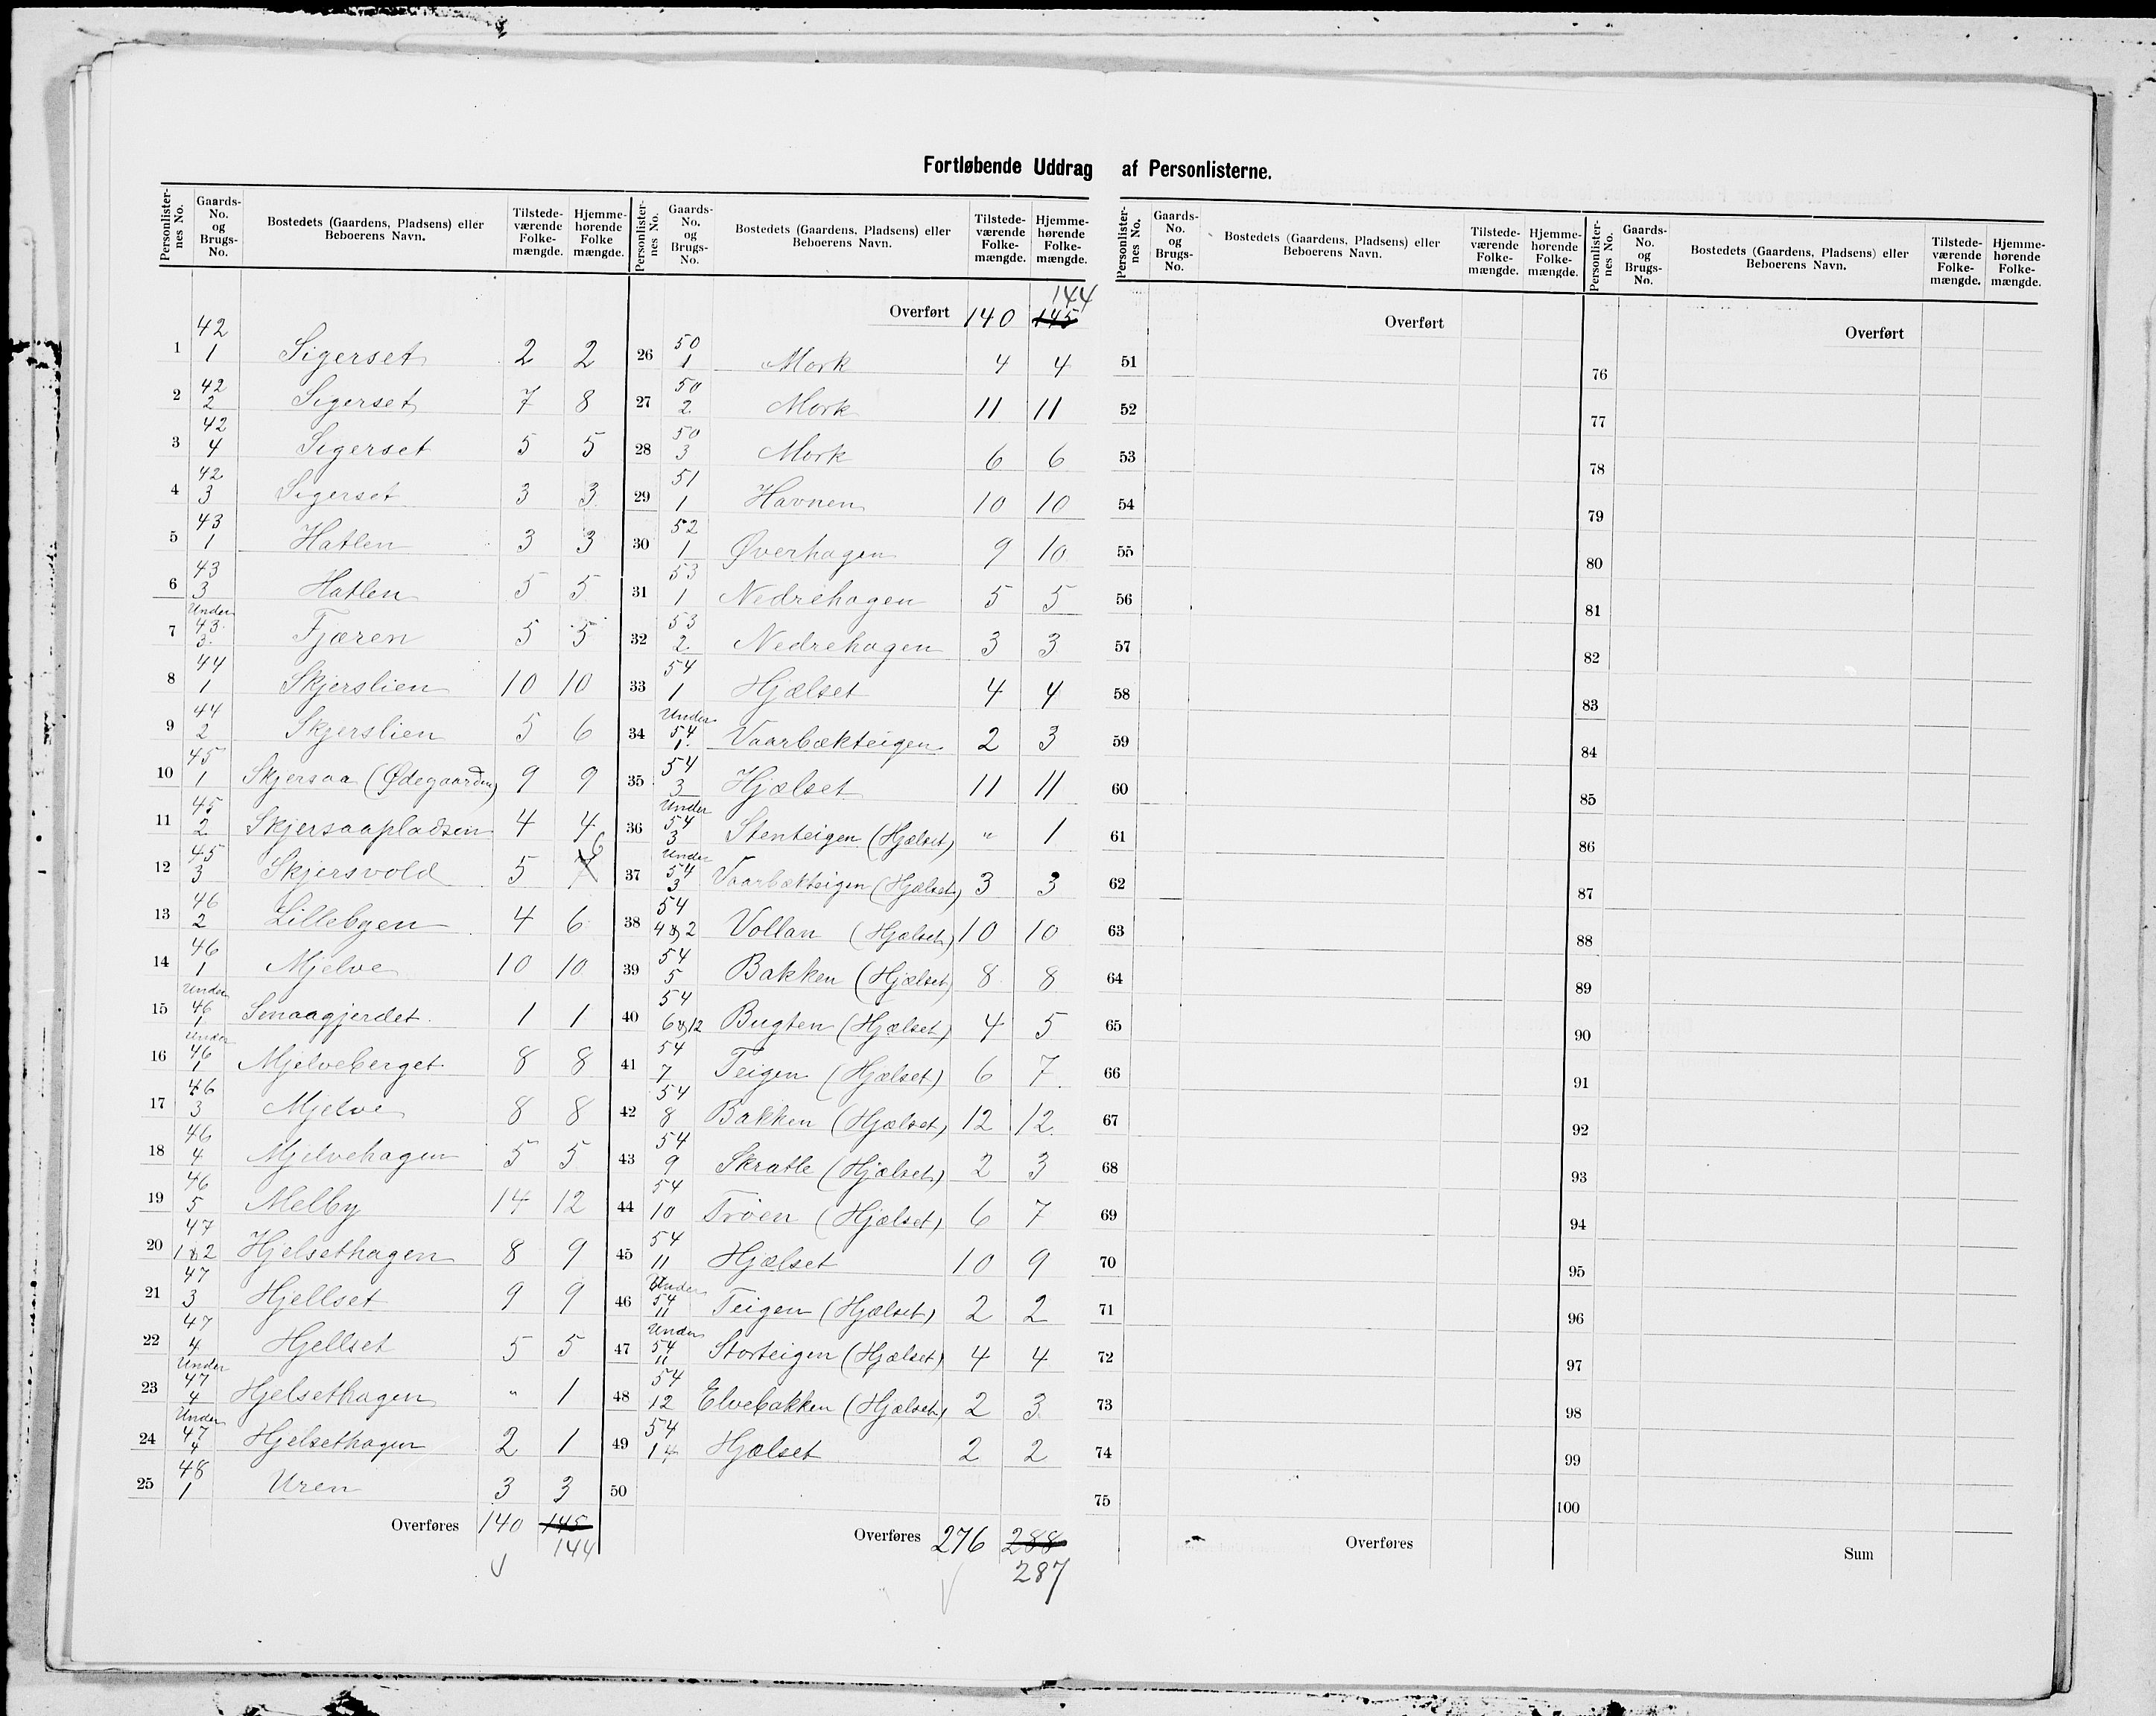 Fortløbende Uddrag af Personlisterne.
Personlister-nes No. | Gaards-No. og Brugs-No. | Bostedets (Gaardens, Pladsens) eller Beboerens Navn. | Tilstede-værende Folke-mængde. | Hjemme-hørende Folke mængde.
1 | 42 1 | Sigerset | 2 | 2
2 | 42 2 | Sigerset | 7 | 8
3 | 42 4 | Sigerset | 5 | 5
4 | 42 3 | Sigerset | 3 | 3
5 | 43 1 | Hatlen | 3 | 3
6 | 43 3 | Hatlen | 5 | 5
7 | Under 43. 3. | Fjæren | 5 | 5
8 | 44 1 | Skjerslien | 10 | 10
9 | 44 2 | Skjerslien | 5 | 6
10 | 45 1 | Skjersaa (Ødegaarden) | 9 | 9
11 | 45 2 | Skjersaapladsen | 4 | 4
12 | 45 3 | Skjersvold | 5 | 7 6
13 | 46 2 | Lillebyen | 4 | 6
14 | 46 1 | Mjelve | 10 | 10
15 | Under 46 1 | Smaagjerdet. | 1 | 1
16 | Under 46 1 | Mjelveberget | 8 | 8
17 | 46 3 | Mjelve | 8 | 8
18 | 46 4 | Mjelvehagen | 5 | 5
19 | 46 5 | Melby | 14 | 12
20 | 47 1 & 2 | Hjelsethagen | 8 | 9
21 | 47 3 | Hjellset | 9 | 9
22 | 47 4 | Hjellset | 5 | 5
23 | Under 47 4 | Hjelsethagen | " | 1
24 | Under 47 4 | Hjelsethagen | 2 | 1
25 | 48 1 | Uren | 3 | 3
Overføres 140 145 144
Personlister-nes No. | Gaards-No. og Brugs-No. | Bostedets (Gaardens, Pladsens) eller Beboerens Navn. | Tilstede-værende Folke-mængde. | Hjemme-hørende Folke-mængde.
Overført 140 145 144
26 | 50 1 | Mork | 4 | 4
27 | 50 2 | Mork | 11 | 11
28 | 50 3 | Mork | 6 | 6
29 | 51 1 | Havnen | 10 | 10
30 | 52 1 | Øverhagen | 9 | 10
31 | 53 1 | Nedrehagen | 5 | 5
32 | 53 2 | Nedrehagen | 3 | 3
33 | 54 1 | Hjælset | 4 | 4
34 | Under 54 1. | Vaarbækteigen | 2 | 3
35 | 54 3 | Hjælset | 11 | 11
36 | Under 54 3 | Stenteigen (Hjælset) | " | 1
37 | Under 54 3 | Vaarbækteigen (Hjælset) | 3 | 3
38 | 54 4 & 2 | Vollan (Hjælset) | 10 | 10
39 | 54 5 | Bakken (Hjælset) | 8 | 8
40 | 54 6 & 12 | Bugten (Hjælset) | 4 | 5
41 | 54 7 | Teigen (Hjælset) | 6 | 7
42 | 54 8 | Bakken (Hjælset) | 12 | 12
43 | 54 9 | Skratle (Hjælset) | 2 | 3
44 | 54 10 | Trøen (Hjælset) | 6 | 7
45 | 54 11 | Hjælset | 10 | 9
46 | Under 54 11 | Teigen (Hjælset) | 2 | 2
47 | Under 54 11 | Storteigen (Hjælset) | 4 | 4
48 | 54 12 | Elvebakken (Hjælset) | 2 | 3
49 | 54 14 | Hjælset | 2 | 2
50
Overføres 276 288 287
Personlister-nes No. | Gaards-No. og Brugs-No. | Bostedets (Gaardens, Pladsens) eller Beboerens Navn. | Tilstede-værende Folke-mængde. | Hjemme-hørende Folke-mængde.
Overført
51
52
53
54
55
56
57
58
59
60
61
62
63
64
65
66
67
68
69
70
71
72
73
74
75
Overføres
Personlister-nes No. | Gaards-No. og Brugs-No. | Bostedets (Gaardens, Pladsens) eller Beboerens Navn. | Tilstede-værende Folke-mængde. | Hjemme-hørende Folke-mængde.
Overført
76
77
78
79
80
81
82
83
84
85
86
87
88
89
90
91
92
93
94
95
96
97
98
99
100
Sum